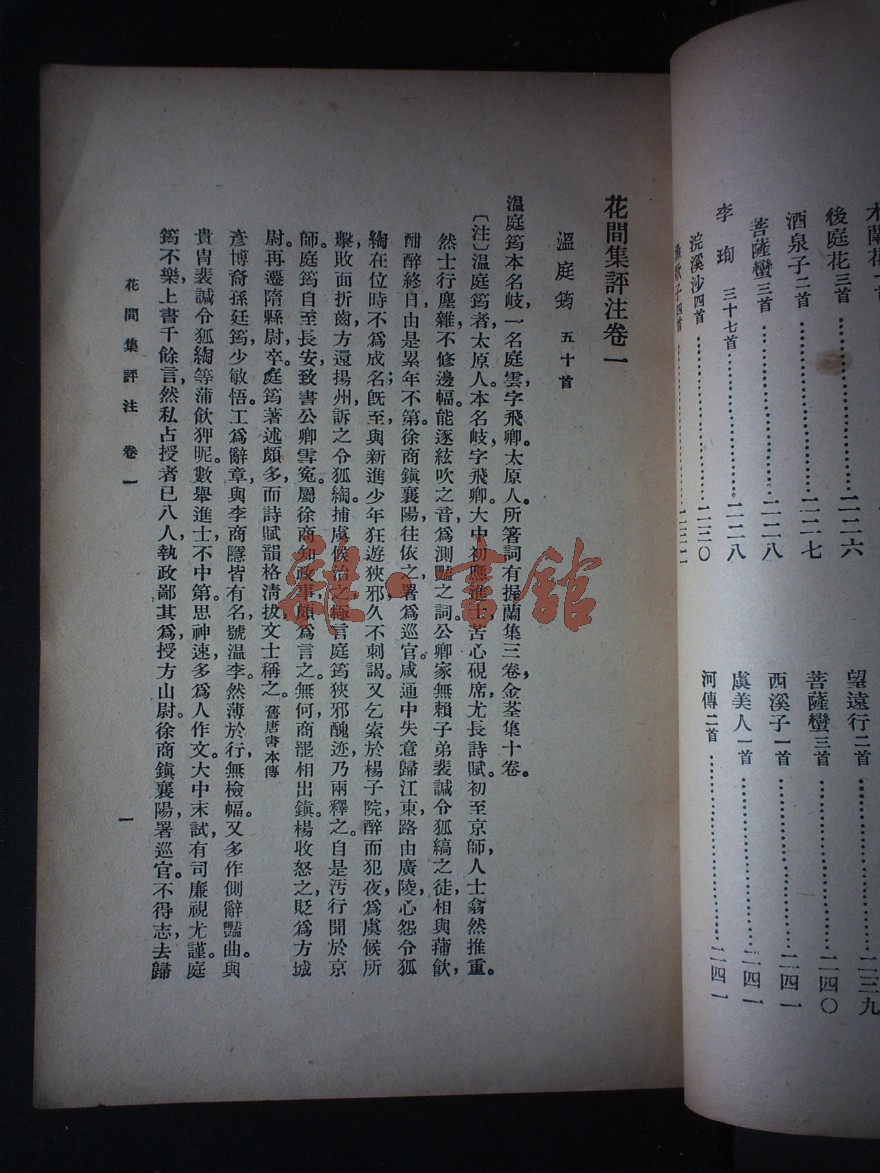 木蘭花一首
後庭花三首…………二二六
酒泉子二首…………二二七
菩薩蠻三首…………二二八
李珣 三十七首…………二二八
浣溪沙四首…………二三〇
漁歌子四首…………二三二
望遠行二首…………二三九
菩薩蠻三首…………二四〇
西溪子一首…………二四一
虞美人一首…………二四一
河傳二首…………二四一
花間集評注卷一
溫庭筠 五十首
溫庭筠本名岐，一名庭雲字飛卿。太原人。所箸詞有握蘭集三卷，金荃集十卷。
〔注〕溫庭筠者，太原人。本名岐，字飛卿。大中初應進士。苦心硯席，尤長詩賦。初至京師，人士翕然推重。
然士行塵雜，不修邊幅，能逐絃吹之音，爲測豔之詞。公卿家無賴子弟裴諴令狐縞之徒，相與蒱飲，
酣醉終日，由是累年不第。徐商鎮襄陽，往依之，署爲巡官。咸通中失意歸江東，路由廣陵，心怨令狐
綯在位時不爲成名；旣至，與新進少年狂遊狹邪，久不刺謁。又乞索於楊子院，醉而犯夜，爲虞候所
擊，敗面折齒，方還揚州訴之。令狐綯捕虞候治之，極言庭筠狹邪醜迹，乃兩釋之。自是汚行聞於京
師。庭筠自至長安，致書公卿雪冤。屬徐商知政事，頗爲言之。無何，商罷相出鎮，楊收怒之，貶爲方城
尉。再遷隋縣尉，卒。庭筠著述頗多，而詩賦韻格淸拔，文士稱之。舊唐書本傳
彥博裔孫廷筠，少敏悟。工爲辭章，與李商隱皆有名，號溫李。然薄於行，無檢幅。又多作側辭豔曲。與
貴冑裴諴令狐綯等蒲飲狎昵。數舉進士不中第。思神速，多爲人作文。大中末，試有司，廉視尤謹。庭
筠不樂，上書千餘言，然私占授者已八人，執政鄙其爲，授方山尉。徐商鎮襄陽，署巡官。不得志，去歸
花間集評注 卷一
一
雜·書館